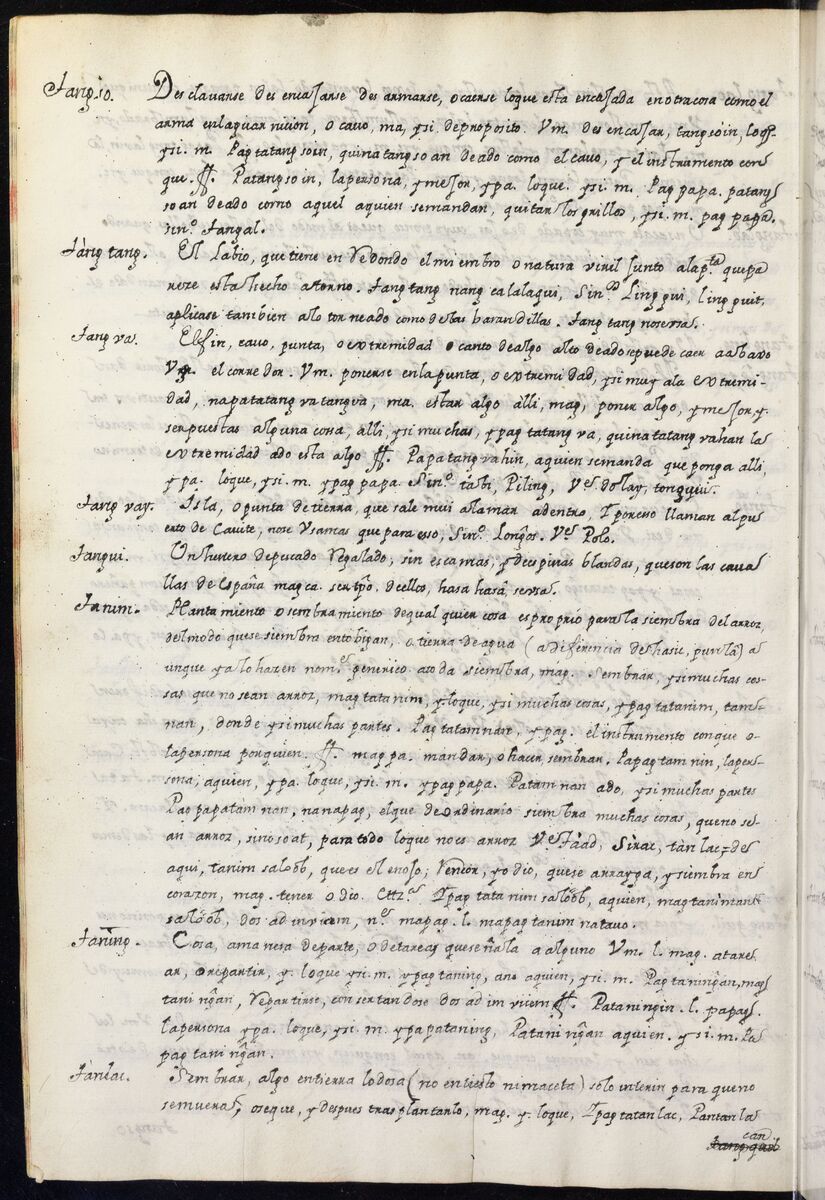 Tangso. Desclavarse desencaJarse desarmarse, o caerse loque esta encaJada en otra cosa como el
arma en la guarnicion, o cavo, ma, ysi. deproposito. Vm. desencaJar, tangsoin, loqe.
ysi. m. Pagtatangsoin, quinatangsoan de ado como el cavo, y el instrumento con
que. ff. Patangsoin, la persona, ymeJor, ypa. loque. ysi. m. Pag papa. patang
soan de ado como aquel aquien semandan, quitar los grillos, ysi. m. pag papa.
sino. Tangal.
Tàng tang. El Labio, que tiene en Redondo el miembro o natura viril Junto ala pta. que pa
reze esta hecho a torno. Tang tang nang ca lalaqui, Sino. Ling gui, ling guit.
aplicase tambien alo torneado como de las barandillas. Tang tang no
Tang va. El fin, cavo, punta, o extremidad o canto de algo alto de ado sepuede caer a abaxo
Vg. el corredor. Vm. ponerse en la punta, o extremidad, ysi muy ala extremi-
dad, napatatang va tangva, ma. estar algo alli, mag, poner algo, ymeJor, y.
ser puestas alguna cosa, alli, ysi muchas, ypag tatang va, quinatatang vahan la
extremidad ado esta algo ff. Papatang vahin, aquien semanda que ponga alli,
ypa. loque, ysi. m. ypag papa. Sino. tabi, Piling, Ve. dolay,
Tang vay. Isla, o punta de tierra, que sale mui alamar adentro, I poresso llaman al pu
erto de Cavite, nose Vsa mas que para esso, Sino. Longos. Ve. Polo.
Tangui. Un genero de pescado Regalado, sin escamas, y de espinas blandas, que son las cava
llas de España magca. ser tpo. de ellos, hasa hasa,
Tanim. Plantamiento o sembramiento de qual quier cosa es proprio para la siembra del arroz,
del modo que se siembra en tobigan, o tierra de agua (a diferencia de hasic, pur) a
unque ya lo hazen nome. generico a toda siembra, mag. Sembrar, ysi muchas co-
sas que no sean arroz, mag tatanim, y. loque, ysi muchas cosas, ypag tatanim, tam-
nan, donde ysi muchas partes. Pag tatamnan, ypag. el instrumento conque o-
la persona por quien. ff. mag pa. mandar, o hacer sembrar. Papag tam nin, la per-
sona, aquien, ypa. loque, ysi. m. ypag papa. Patam nan ado, ysi muchas partes
Pag papatam nan, nanapag, el que de ordinario siembra muchas cosas, que no se-
an arroz, sino soat, para todo loque no es arroz Ve. Tàad, Sirac, tàn lac, de
aqui, tanim saloob, que es el enoJo, Rencor, y odio, que se arrayga, ysiembra en
corazon, mag. tener odio. Ettza. Ipag tata nim saloob, aquien, mag tanimans
saloob, dos ad invicem, ne. mapag. l. mapag tanim nataVo.
Taning. Cosa, a manera de parte, o de tareas que señala a alguno Vm. l. mag. atare-
ar, o repartir, y. loque ysi. m. ypag taning, ano aquien, ysi. m. Pag taningan, mag
tani ngan, Repartirse, concertandose dos ad im vicem ff. Pataningin. l. papag.
la persona ypa. loque, ysi. m. ypapataning, Patani ngan aquien. ysi. m. Pa
pag tani ngan.
Tànlac. Sembrar, algo en tierra lodosa (no en tiesto ni maceta) solo interin para que no
se muera, o seque, y despues trasplantarlo, mag. y. loque, Ipag tatan lac, Pantan la
can